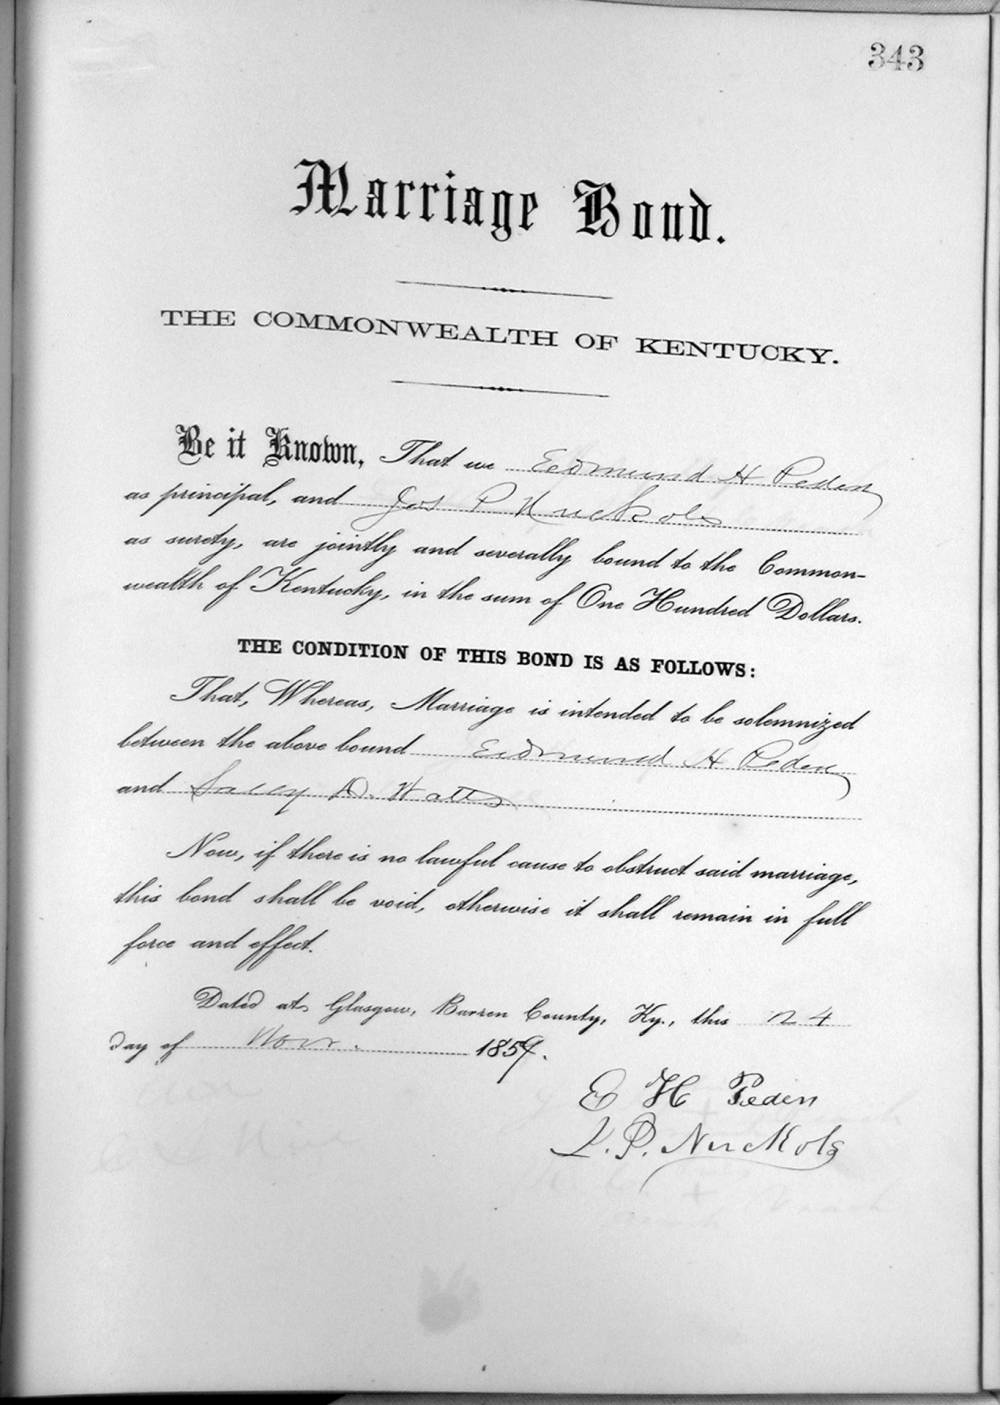 343
Marriage Bond.
THE COMMONWEALTH OF KENTUCKY.
Be it Known, That we Edmund H Peden
as principal, and Jas P Nuckols
as surety, are jointly and severally bound to the Common-
wealth of Kentucky, in the sum of One Hundred Dollars.
THE CONDITION OF THIS BOND IS AS FOLLOWS:
That, Whereas, Marriage is intended to be solemnized
between the above bound Edmund H Peden
and Sally D. Watts
Now, if there is no lawful cause to obstruct said marriage,
this bond shall be void, otherwise it shall remain in full
force and effect.
Dated at Glasgow, Barren County, Ky., this 24
day of Nov. 1859.
E H Peden
J. P. Nuckols